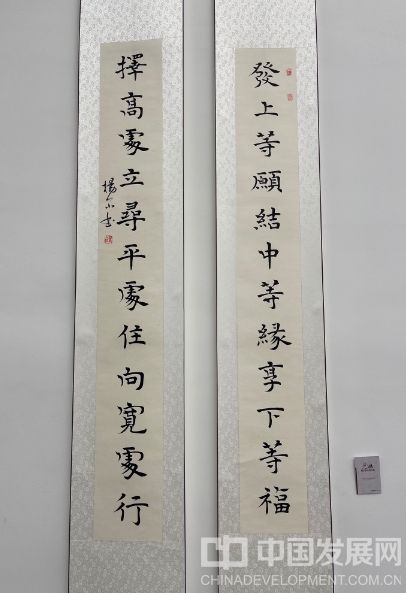 發上等願結中等緣享下等福
擇高處立尋平處住向寬處行
中国发展网
CHINADEVELOPMENT.COM.CN